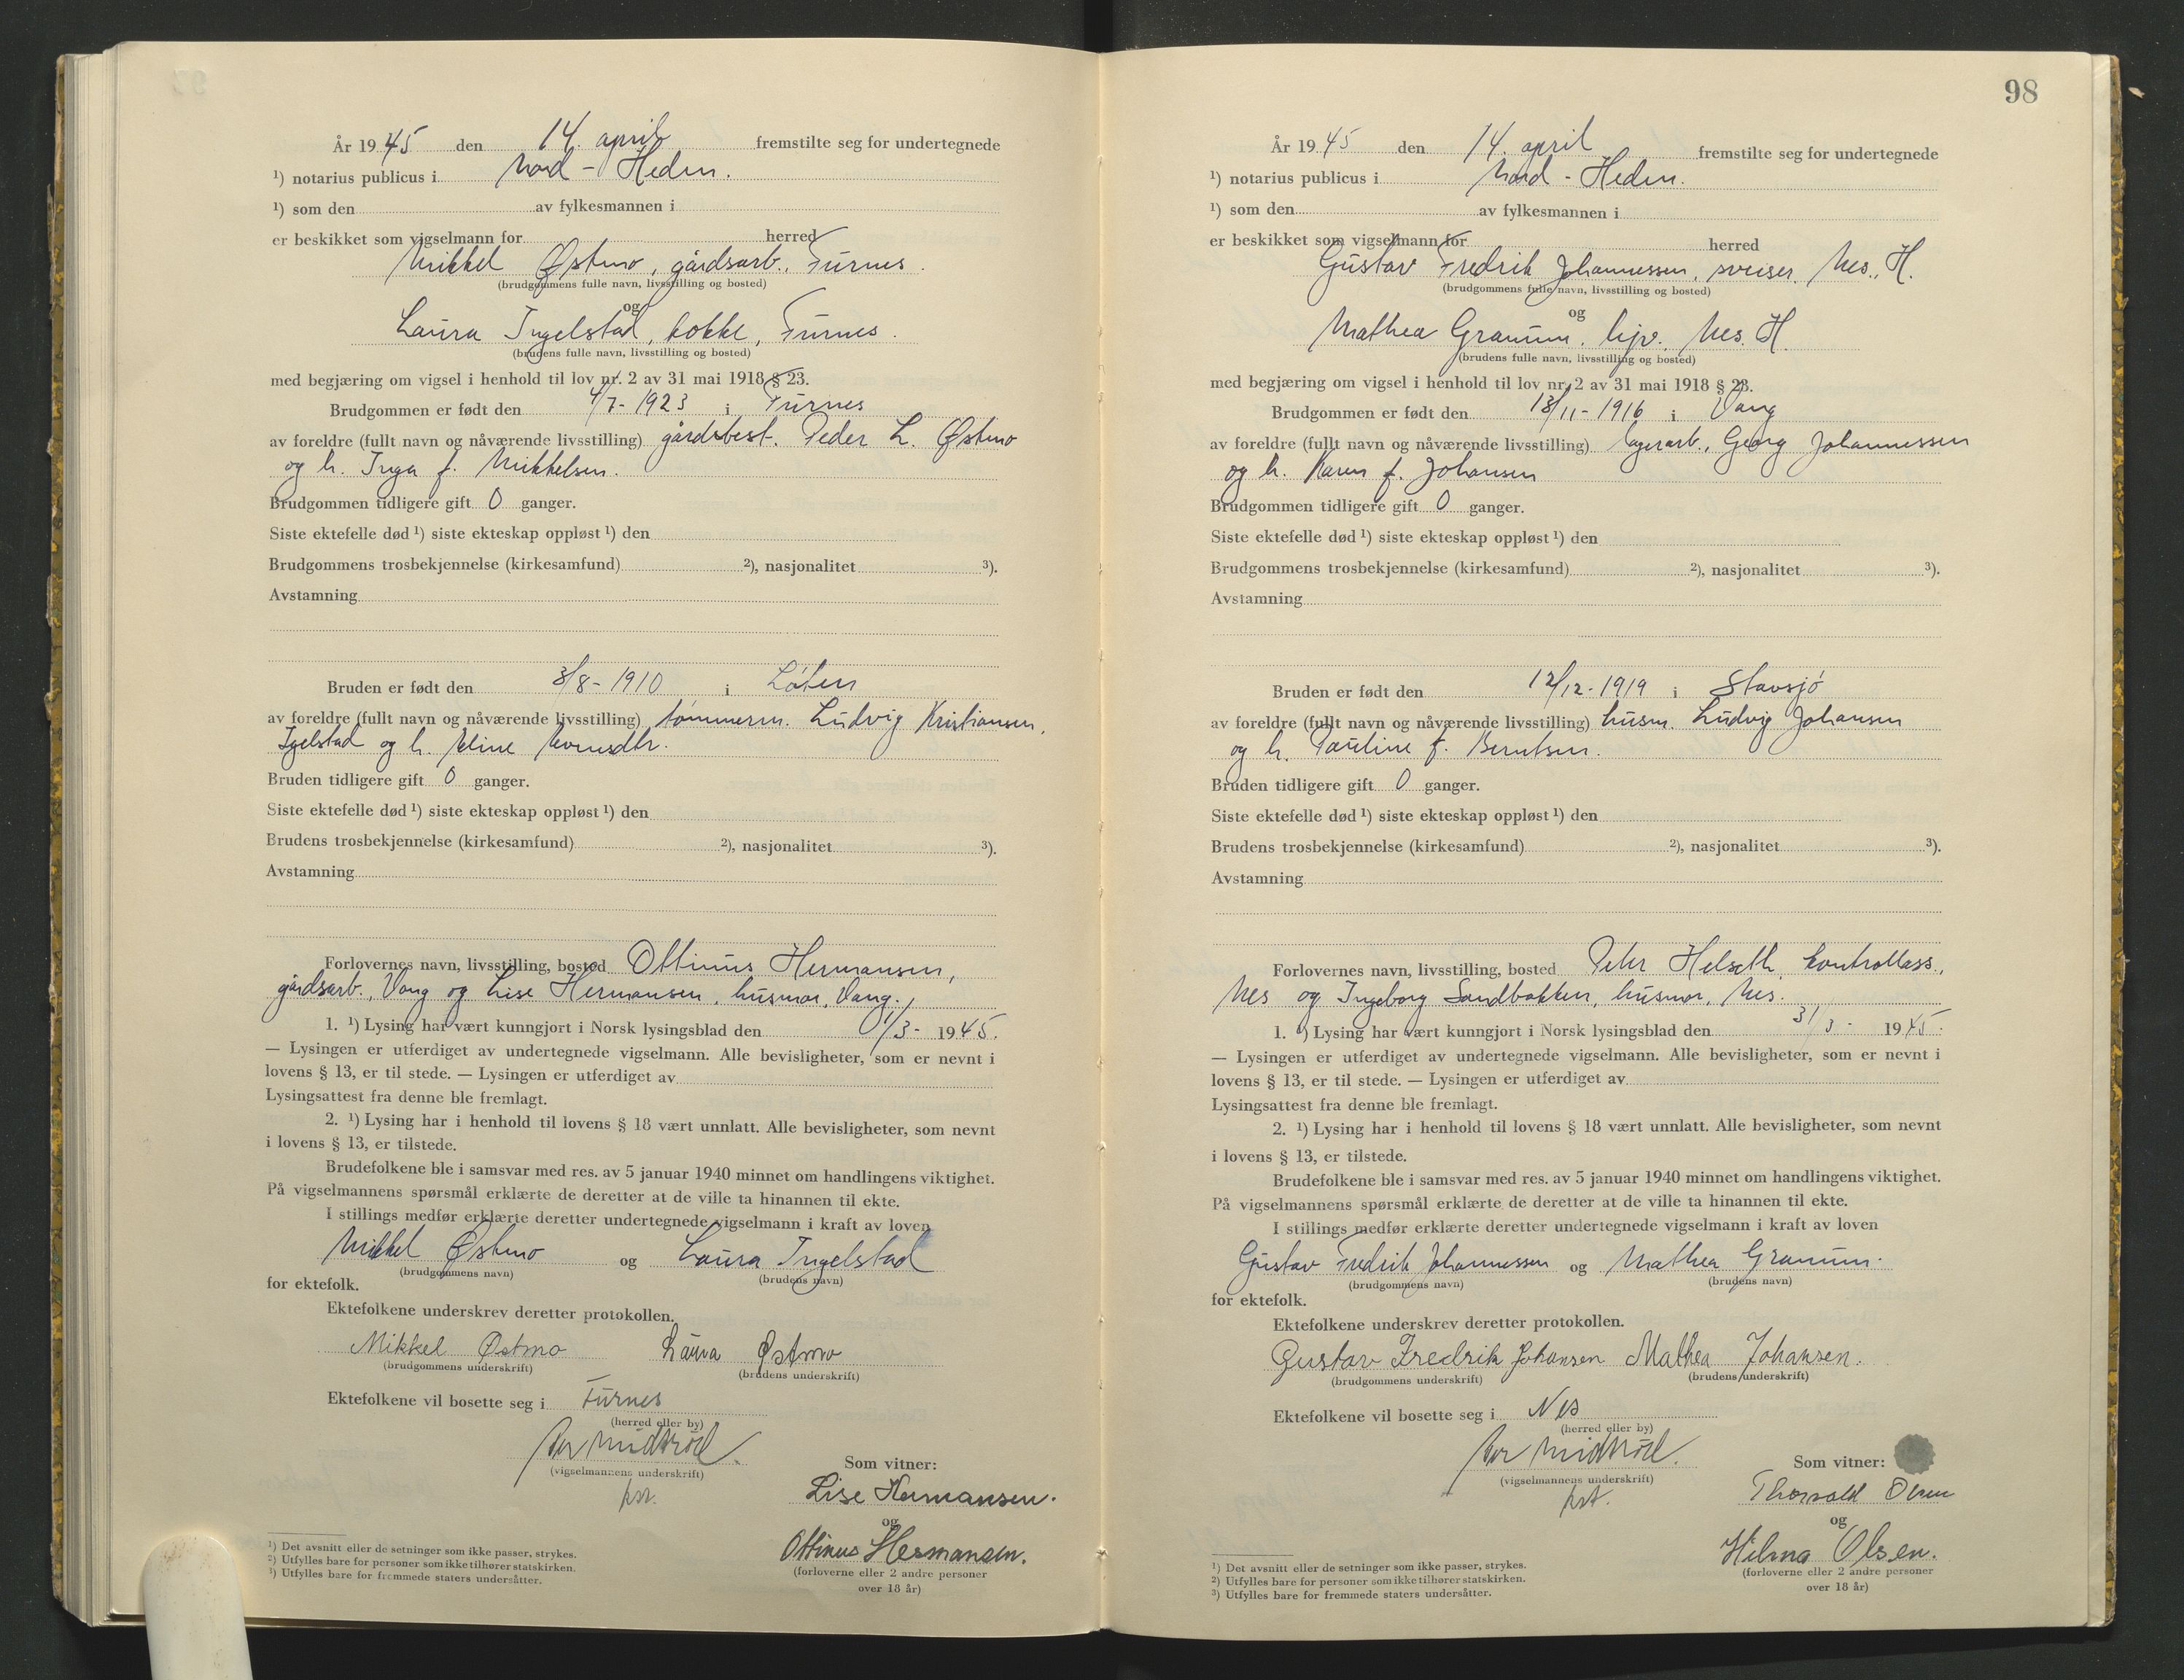 År 1945 den 14. april fremstilte seg for undertegnede
¹) notarius publicus i Nord-Hedm.
¹) som den av fylkesmannen i
er beskikket som vigselmann for herred
Mikkel Østmo, gårdsarb., Furnes.
(brudgommens fulle navn, livsstilling og bosted)
og
Laura Ingelstad, kokke, Furnes.
(brudens fulle navn, livsstilling og bosted)
med begjæring om vigsel i henhold til lov nr. 2 av 31 mai 1918 § 23.
Brudgommen er født den 4/7-1923 i Furnes
av foreldre (fullt navn og nåværende livsstilling) gårdsbest. Peder L. Østmo
og h. Inga f. Mikkelsen.
Brudgommen tidligere gift 0 ganger.
Siste ektefelle død ¹) siste ekteskap oppløst ¹) den
Brudgommens trosbekjennelse (kirkesamfund) ²), nasjonalitet ³).
Avstamning
Bruden er født den 3/8-1910 i Løten
av foreldre (fullt navn og nåværende livsstilling) tømmerm. Ludvig Kristiansen,
Igelstad og h.
Bruden tidligere gift 0 ganger.
Siste ektefelle død ¹) siste ekteskap oppløst ¹) den
Brudens trosbekjennelse (kirkesamfund) ²), nasjonalitet ³).
Avstamning
Forlovernes navn, livsstilling, bosted Ottinus Hermansen,
gårdsarb., Vang og Lise Hermansen, husmor, Vang.
1. ¹) Lysing har vært kunngjort i Norsk lysingsblad den /3- 1945.
— Lysingen er utferdiget av undertegnede vigselmann. Alle bevisligheter, som er nevnt i
lovens § 13, er til stede. — Lysingen er utferdiget av
Lysingsattest fra denne ble fremlagt.
2. ¹) Lysing har i henhold til lovens § 18 vært unnlatt. Alle bevisligheter, som nevnt
i lovens § 13, er tilstede.
Brudefolkene ble i samsvar med res. av 5 januar 1940 minnet om handlingens viktighet.
På vigselmannens spørsmål erklærte de deretter at de ville ta hinannen til ekte.
I stillings medfør erklærte deretter undertegnede vigselmann i kraft av loven
Mikkel Østmo og Laura Ingelstad
(brudgommens navn) (brudens navn)
for ektefolk.
Ektefolkene underskrev deretter protokollen.
Mikkel Østmo Laura Østmo
(brudgommens underskrift) (brudens underskrift)
Ektefolkene vil bosette seg i Furnes
(herred eller by)
(vigselmannens underskrift)
Som vitner:
Lise Hermansen.
og
Ottinus Hermansen.
(forloverne eller 2 andre personer
over 18 år)
¹) Det avsnitt eller de setninger som ikke passer, strykes.
²) Utfylles bare for personer som ikke tilhører statskirken.
³) Utfylles bare for fremmede staters undersåtter.
98
År 1945 den 14. april fremstilte seg for undertegnede
¹) notarius publicus i Nord-Hedm.
¹) som den av fylkesmannen i
er beskikket som vigselmann for herred
Gustav Fredrik Johannessen, sveiser, Nes, H.
(brudgommens fulle navn, livsstilling og bosted)
og
Mathea Granum, hjv. Nes. H.
(brudens fulle navn, livsstilling og bosted)
med begjæring om vigsel i henhold til lov nr. 2 av 31 mai 1918 § 23.
Brudgommen er født den 13/11-1916 i Vang
av foreldre (fullt navn og nåværende livsstilling) lagerarb., Georg Johannessen
og h. Karen f. Johansen
Brudgommen tidligere gift 0 ganger.
Siste ektefelle død ¹) siste ekteskap oppløst ¹) den
Brudgommens trosbekjennelse (kirkesamfund) ²), nasjonalitet ³).
Avstamning
Bruden er født den 12/12-1919 i Stavsjø
av foreldre (fullt navn og nåværende livsstilling) husm. Ludvig Johansen
og h. Pauline f. Berntsen.
Bruden tidligere gift 0 ganger.
Siste ektefelle død ¹) siste ekteskap oppløst ¹) den
Brudens trosbekjennelse (kirkesamfund) ²), nasjonalitet ³).
Avstamning
Forlovernes navn, livsstilling, bosted Peter Helseth, kontrollass.,
Nes og Ingeborg Sandbakken, husmor, Nes.
1. ¹) Lysing har vært kunngjort i Norsk lysingsblad den 3/3- 1945.
— Lysingen er utferdiget av undertegnede vigselmann. Alle bevisligheter, som er nevnt i
lovens § 13, er til stede. — Lysingen er utferdiget av
Lysingsattest fra denne ble fremlagt.
2. ¹) Lysing har i henhold til lovens § 18 vært unnlatt. Alle bevisligheter, som nevnt
i lovens § 13, er tilstede.
Brudefolkene ble i samsvar med res. av 5 januar 1940 minnet om handlingens viktighet.
På vigselmannens spørsmål erklærte de deretter at de ville ta hinannen til ekte.
I stillings medfør erklærte deretter undertegnede vigselmann i kraft av loven
Gustav Fredrik Johannessen og Mathea Granum.
(brudgommens navn) (brudens navn)
for ektefolk.
Ektefolkene underskrev deretter protokollen.
Gustav Fredrik Johansen Mathea Johansen.
(brudgommens underskrift) (brudens underskrift)
Ektefolkene vil bosette seg i Nes
(herred eller by)
(vigselmannens underskrift)
Som vitner:
Thorvald Olsen
og
Hilma Olsen.
(forloverne eller 2 andre personer
over 18 år)
¹) Det avsnitt eller de setninger som ikke passer, strykes.
²) Utfylles bare for personer som ikke tilhører statskirken.
³) Utfylles bare for fremmede staters undersåtter.